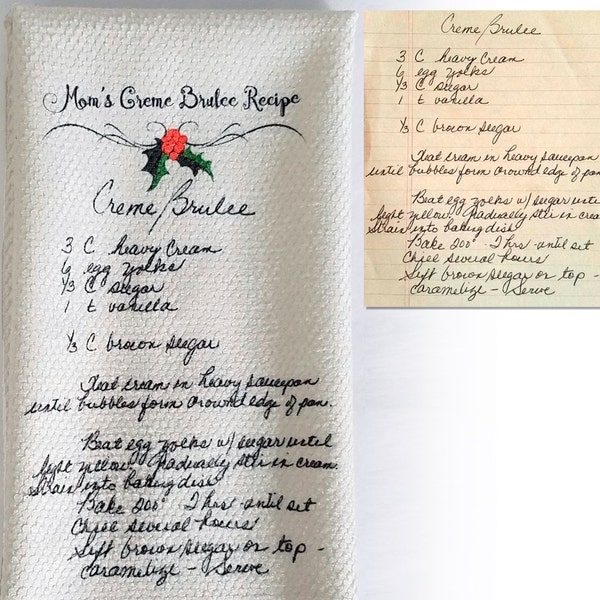 Mom's Creme Brulee Recipe
Creme Brulee
3 C heavy cream
6 egg yolks
1/3 C sugar
1 t vanilla
1/3 C brown sugar
Heat cream in heavy saucepan
until bubbles form around edge of pan.
Beat egg yolks w/ sugar until
light yellow. Gradually stir in cream.
Strain into baking dish
Bake 200° 2 hrs until set
Chill several hours
Sift brown sugar on top -
caramelize - Serve
Creme Brulee
3 C heavy cream
6 egg yolks
1/3 C sugar
1 t vanilla
1/3 C brown sugar
Heat cream in heavy saucepan
until bubbles form around edge of pan.
Beat egg yolks w/ sugar until
light yellow. Gradually stir in cream
Strain into baking dish
Bake 200° 2 hrs until set
Chill several hours
Sift brown sugar on top -
caramelize - Serve